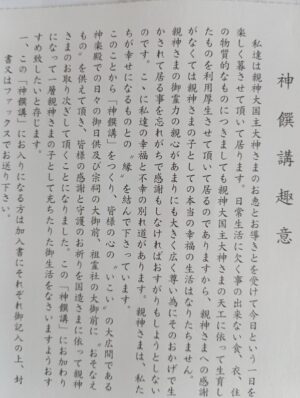 神饌講趣意
私達は親神大国主大神さまのお恵とお導きとを受けて今日という一日を
楽しく暮させて頂いて居ります。日常生活に欠く事の出来ない食、衣、住
の物質的なものにつきましても親神大国主大神さまの天工に依って生育し
たものを利用厚生させて頂いて居るのでありますから、親神さまへの感謝
がなくては親神さまの子としての本当の幸福の生活はなりたちません。
親神さまの御霊力の親心があまりにも大きく広く尊い為にそのおかげで生
かされて居る事を忘れがちで感謝もしなければおすがりもしようとしない
のです。こゝに私達の幸福と不幸の別れ道があります。親神さまは、私た
ちが幸せになるものとの〝縁〟を結んで下さっています。
このことから「神饌講」をつくり、皆様の心の〝いこい〟の大広間である
神楽殿での日々の御日供及び宗祠の大御前、祖霊社の大御前に〝おそなえ
もの〟を供えて頂き、皆様の感謝と守護のお祈りを国造さまに依って親神
さまのお取り次ぎして頂くことになりました。この「神饌講」にお加わり
になって一層親神さまの子として充ちたりた御生活をなさいますようおす
すめ致したいと存じます。
一、この「神饌講」にお入りになる方は加入書にそれぞれ御記入の上、封
書又はファックスでお送り下さい。